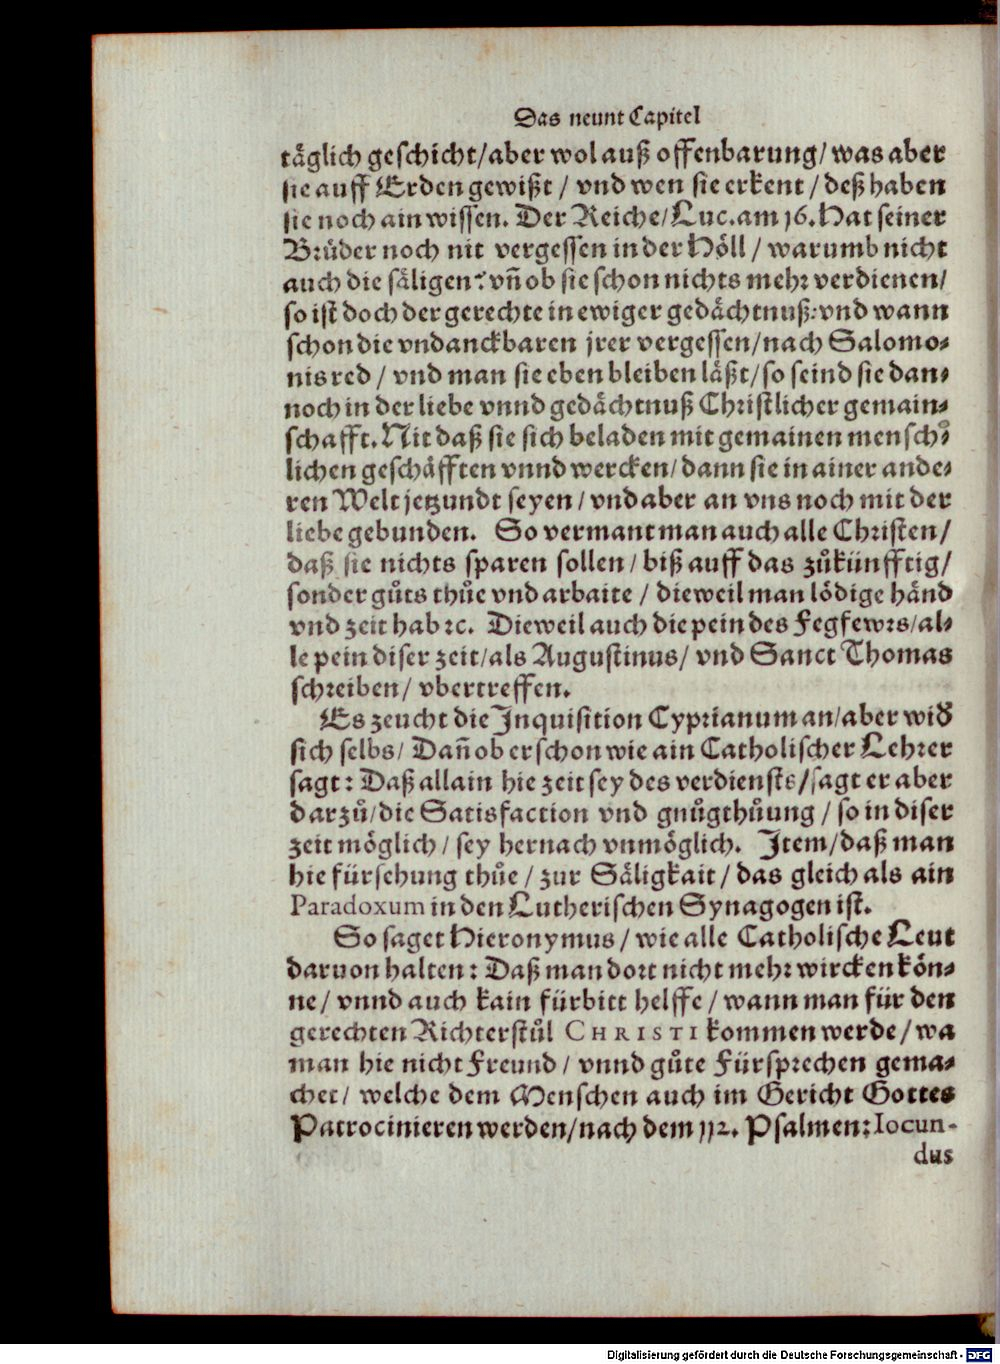 Das neunt Capitel
täglich geschicht/aber wol auß offenbarung/was aber
sie auff Erden gewißt / vnd wen sie erkent / deß haben
sie noch ain wissen. Der Reiche/Luc.am 16. Hat seiner
Brůder noch nit vergessen in der Höll / warumb nicht
auch die säligen? vñ ob sie schon nichts mehr verdienen/
so ist doch der gerechte in ewiger gedächtnuß: vnd wann
schon die vndanckbaren jrer vergessen/nach Salomo⸗
nis red / vnd man sie eben bleiben läßt/so seind sie dan⸗
noch in der liebe vnnd gedächtnuß Christlicher gemain⸗
schafft. Nit daß sie sich beladen mit gemainen mensch⸗
lichen geschäfften vnnd wercken/dann sie in ainer ande⸗
ren Welt jetzundt seyen / vnd aber an vns noch mit der
liebe gebunden. So vermant man auch alle Christen/
daß sie nichts sparen sollen / biß auff das zůkünfftig/
sonder gůts thůe vnd arbaite / dieweil man lödige händ
vnd zeit hab ꝛc. Dieweil auch die pein des Fegfewrs/al⸗
le pein diser zeit/als Augustinus/ vnd Sanct Thomas
schreiben/ vbertreffen.
Es zeucht die Inquisition Cyprianum an/aber wid̄
sich selbs/ Dañ ob er schon wie ain Catholischer Lehrer
sagt: Daß allain hie zeit sey des verdiensts/sagt er aber
darzů/die Satisfaction vnd gnůgthůung / so in diser
zeit möglich / sey hernach vnmöglich. Item/daß man
hie fürsehung thůe / zur Säligkait / das gleich als ain
Paradoxum in den Lutherischen Synagogen ist.
So saget Hieronymus / wie alle Catholische Leut
daruon halten: Daß man dort nicht mehr wircken kön⸗
ne/ vnnd auch kain fürbitt helffe / wann man für den
gerechten Richterstůl CHRISTI kommen werde / wa
man hie nicht Freund / vnnd gůte Fürsprechen gema⸗
chet/ welche dem Menschen auch im Gericht Gottes
Patrocinieren werden/nach dem 112. Psalmen: Iocun-
dus
Digitalisierung gefördert durch die Deutsche Forschungsgemeinschaft - DFG